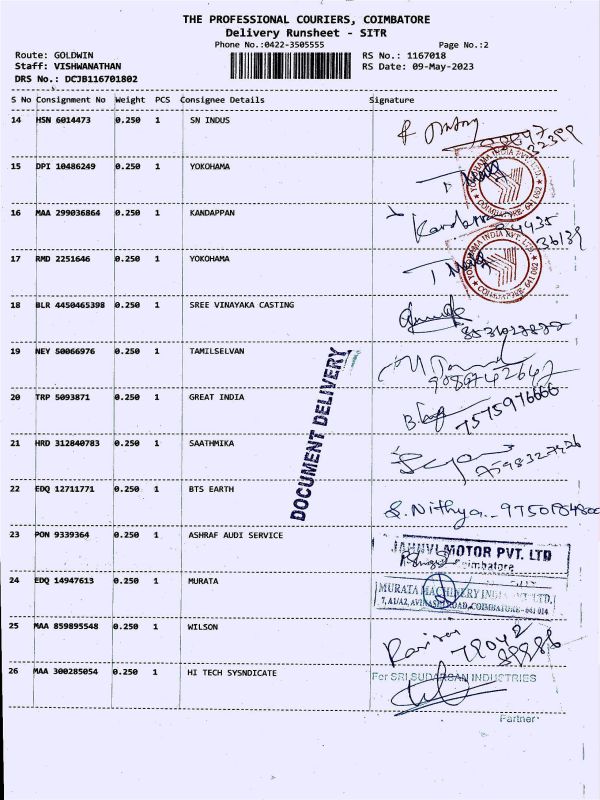 THE PROFESSIONAL COURIERS, COIMBATORE
Delivery Runsheet - SITR
Phone No.:0422-3505555 Page No.:2
Route: GOLDWIN RS No.: 1167018
Staff: VISHWANATHAN RS Date: 09-May-2023
DRS No.: DCJB116701802
S No Consignment No Weight PCS Consignee Details Signature
14 HSN 6014473 0.250 1 SN INDUS
15 DPI 10486249 0.250 1 YOKOHAMA
YOKOHAMA INDIA PVT. LTD.
COIMBATORE- 641 062
16 MAA 299036864 0.250 1 KANDAPPAN
17 RMD 2251646 0.250 1 YOKOHAMA
YOKOHAMA INDIA PVT. LTD.
COIMBATORE- 641 062
18 BLR 4450465398 0.250 1 SREE VINAYAKA CASTING
19 NEY 50066976 0.250 1 TAMILSELVAN
9089742642
DOCUMENT DELIVERY
20 TRP 5093871 0.250 1 GREAT INDIA
7575976666
21 HRD 312840783 0.250 1 SAATHMIKA
22 EDQ 12711771 0.250 1 BTS EARTH S. Nithya
23 PON 9339364 0.250 1 ASHRAF AUDI SERVICE
JAHNVI MOTOR PVT. LTD
Coimbatore
24 EDQ 14947613 0.250 1 MURATA
MURATA MACHINERY INDIA PVT. LTD.
7, A1/A2, AVINASHI ROAD, COIMBATORE - 641 014
25 MAA 859895548 0.250 1 WILSON
26 MAA 300285054 0.250 1 HI TECH SYSNDICATE
For SRI SUDARSAN INDUSTRIES
Partner